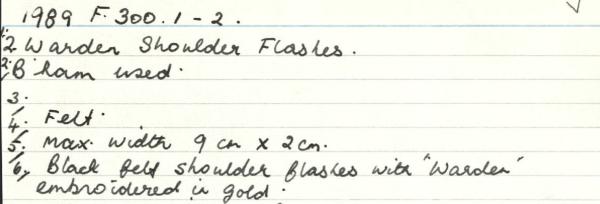 1989 F. 300. 1 - 2.
1. 2 Warden Shoulder Flashes.
2. B'ham used.
3.
4. Felt.
5. Max. width 9 cm x 2 cm.
6. Black felt shoulder flashes with "Warden"
embroidered in gold.